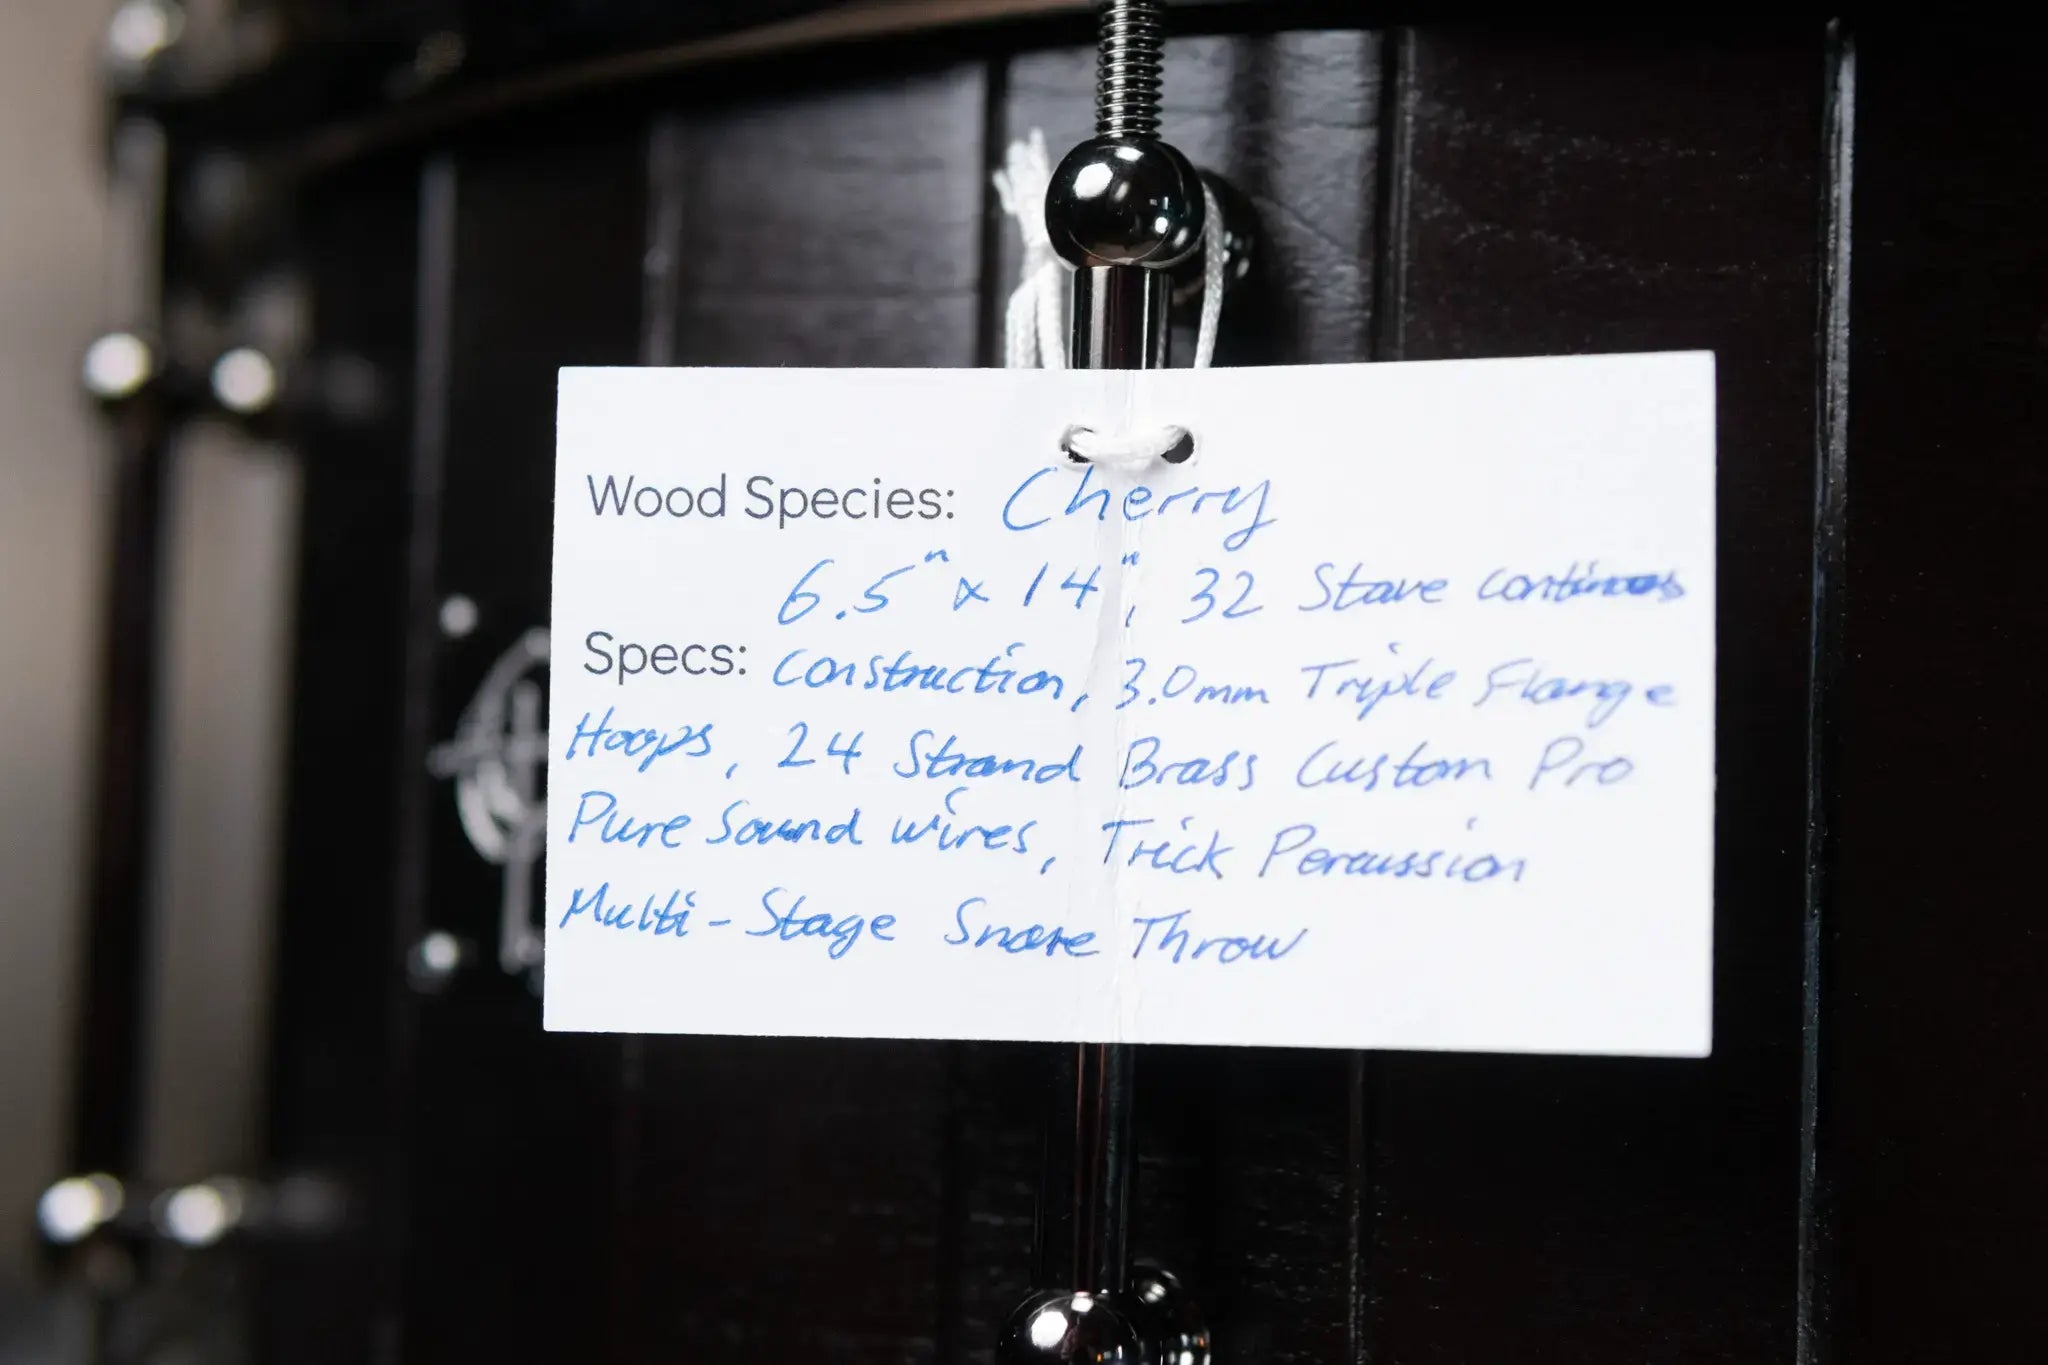 Wood Species: Cherry
6.5" x 14", 32 Stave continuous
Specs: construction, 3.0mm Triple Flange
Hoops, 24 Strand Brass Custom Pro
Pure Sound wires, Trick Percussion
Multi-Stage Snare Throw